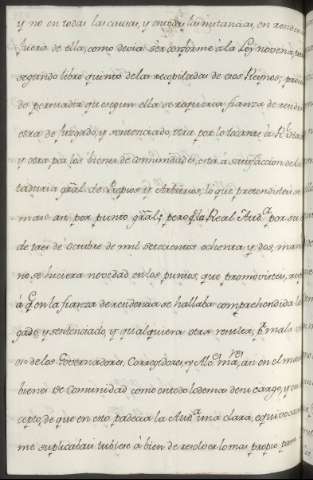 y no en todas las causas, y en todas las instancias, en residen
fuera de ella, como devia ser conforme à la Ley novena,
segundo libro quinto de las recopiladas de esos Reinos;
do persuadir que segun ella se requiria fianza de residen
otra de Juzgado, y sentenciado, otra por lo tocante à Rl.
y otra por los bienes de comunidades, esta à satisfaccion de la
taduria gral. de Propios y Arbitrios, lo que pretendisteis se
mase an por punto gral.; pero la Real Auda. por su
de trece de octubre de mil setecientos ochenta y dos, man
no se hiciera novedad en los puntos, que promovisteis,
a q. en la fianza de residencia se hallaba comprehendida la
gado y sentenciado, y qualquiera otra resulta, de mala
on de los Governadores, Corregidores, y Alcs. mres. an en el
bienes de comunidad como en todo lo demas de su cargo, y
cepto, de que en esto padecia la Auda. una clara, equivocacion
me suplicabais tubiese à bien de resolver lo mas propio para